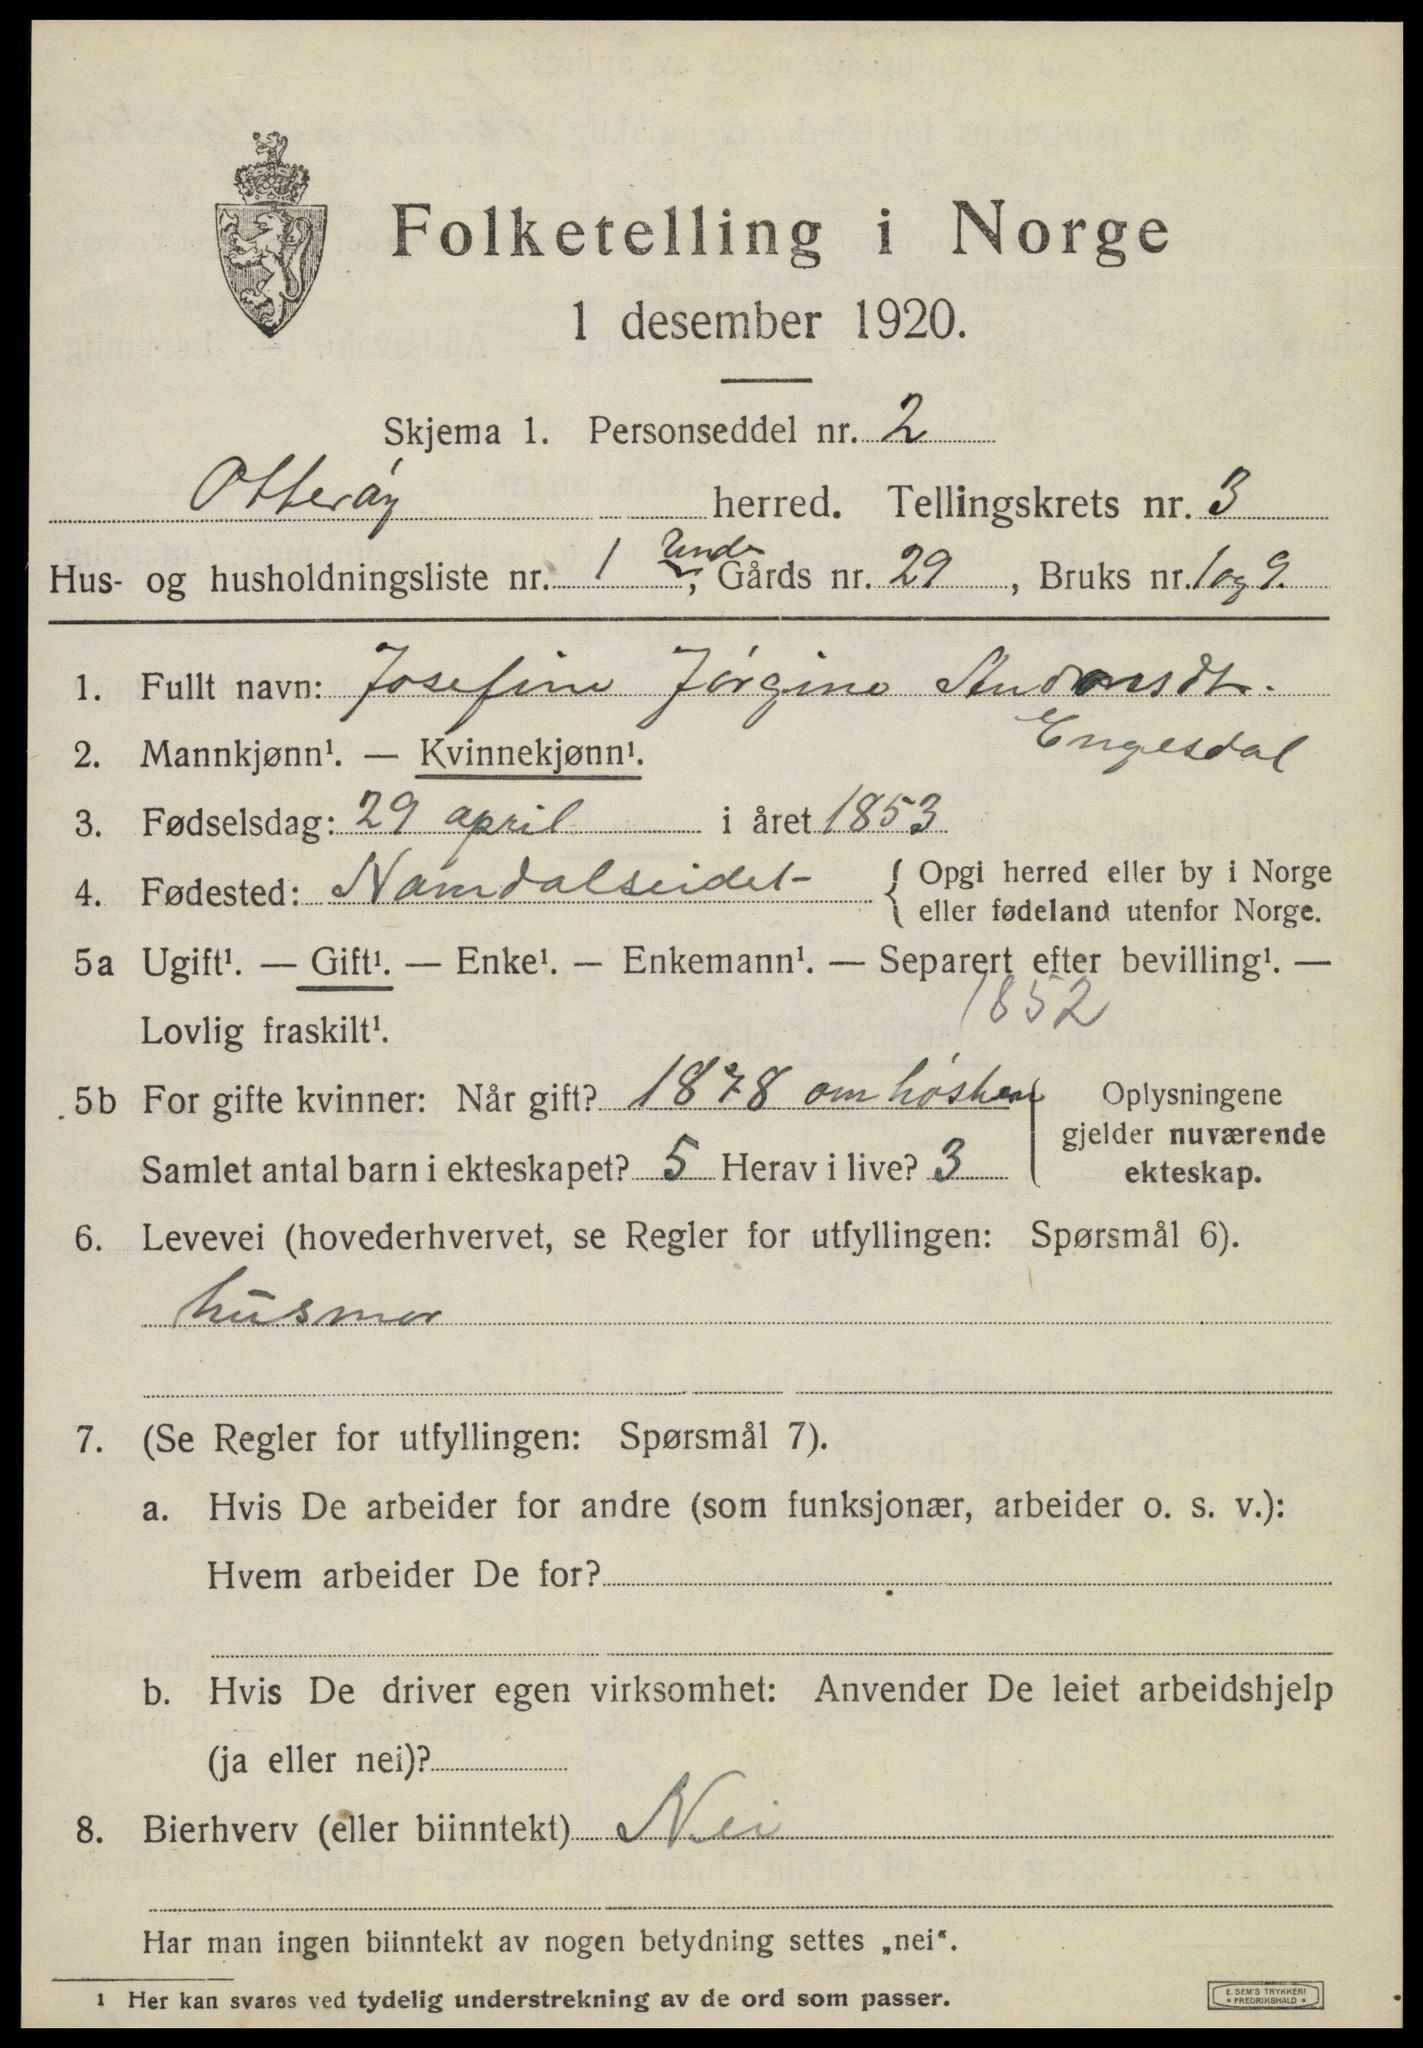 Folketelling i Norge
1 desember 1920.
Skjema 1. Personseddel nr. 2
Otterøy herred. Tellingskrets nr. 3
Hus- og husholdningsliste nr. 1 Under, Gårds nr. 29, Bruks nr. 1 og 9.
1. Fullt navn: Josefine Jørgine
Engesdal
2. Mannkjønn¹. — Kvinnekjønn¹.
3. Fødselsdag: 29 april i året 1853
4. Fødested: Namdalseidet { Opgi herred eller by i Norge
eller fødeland utenfor Norge.
5a Ugift¹. — Gift¹. — Enke¹. — Enkemann¹. — Separert efter bevilling¹. —
1852
Lovlig fraskilt¹.
5b For gifte kvinner: Når gift? 1878 om høsten Oplysningene
gjelder nuværende
Samlet antal barn i ekteskapet? 5 Herav i live? 3 ekteskap.
6. Levevei (hovederhvervet, se Regler for utfyllingen: Spørsmål 6).
husmor
7. (Se Regler for utfyllingen: Spørsmål 7).
a. Hvis De arbeider for andre (som funksjonær, arbeider o. s. v.):
Hvem arbeider De for?
b. Hvis De driver egen virksomhet: Anvender De leiet arbeidshjelp
(ja eller nei)?
8. Bierhverv (eller biinntekt) Nei
Har man ingen biinntekt av nogen betydning settes „nei“.
1 Her kan svares ved tydelig understrekning av de ord som passer.
E. SEM'S TRYKKERI
FREDRIKSHALD